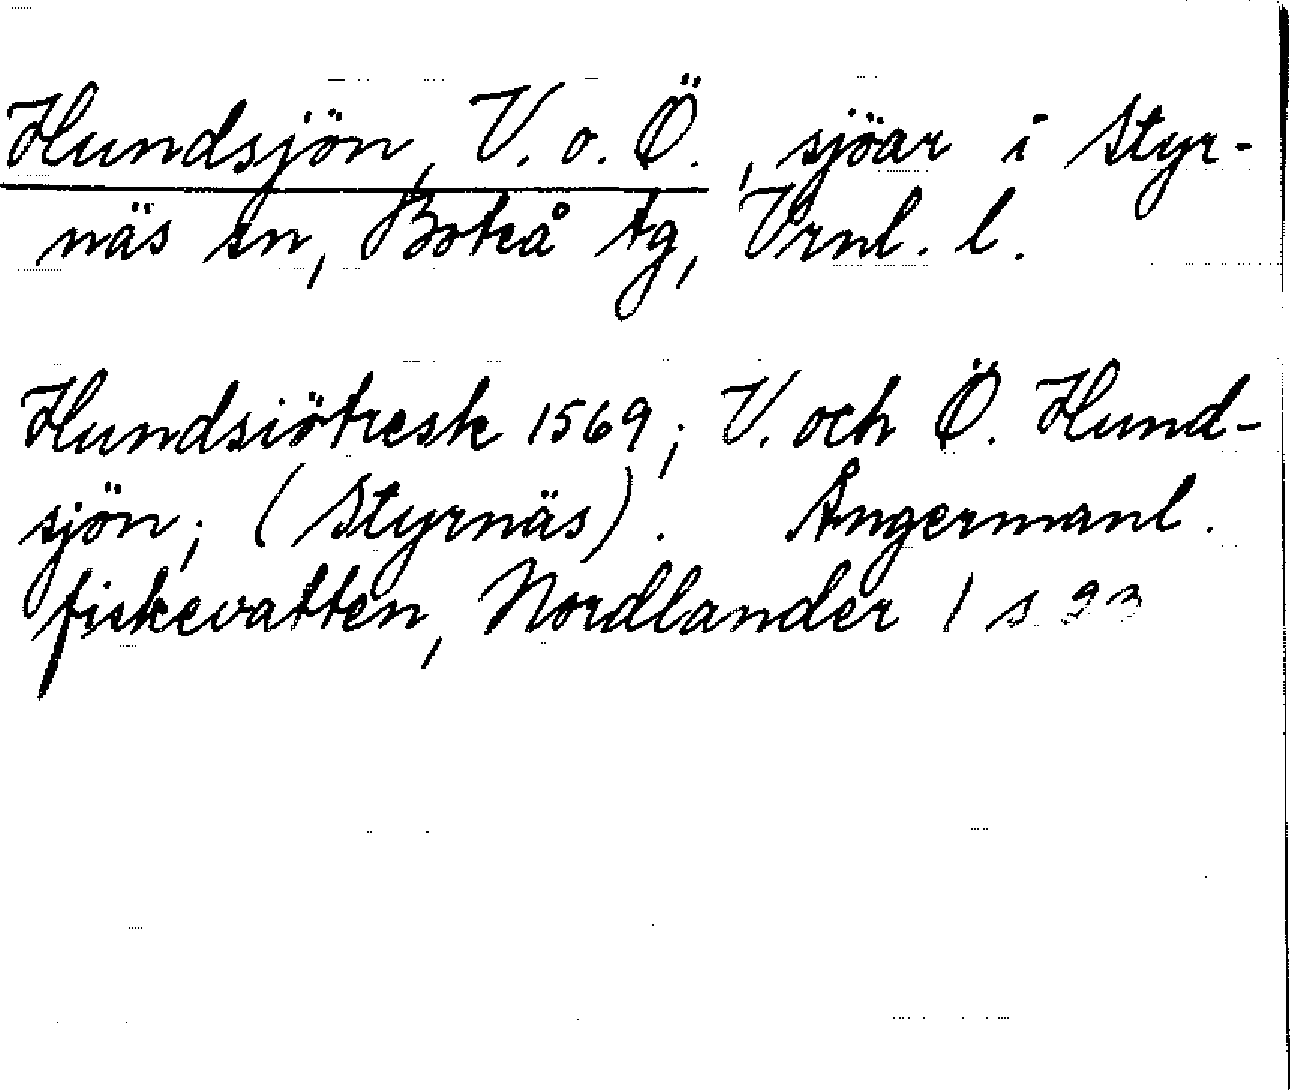 Hundsjön, V. o. Ö., sjöar i Styr-
näs sn, Boteå tg, Vrnl. l.
Hundsiötresk 1569; V. och Ö. Hund-
sjön; (Styrnäs). Ångermanl.
fiskevatten, Nordlander 1 s 23